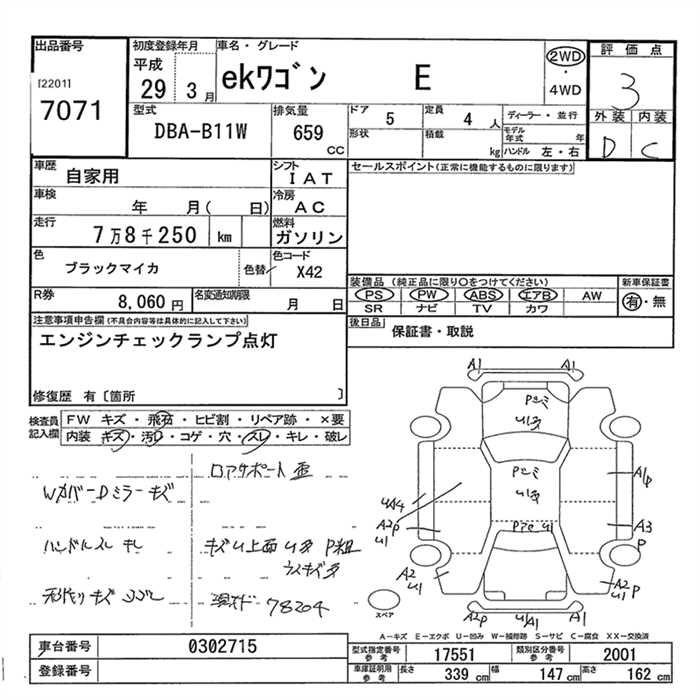 出品番号
[2201]
7071
初度登録年月
平成
29 3月
車名・グレード
ekワゴン E
2WD
・
4WD
評価点
3
外装 内装
D C
型式
DBA-B11W
排気量
659
CC
ドア 5
定員 4 人
形状
積載 kg
ディーラー・並行
モデル年式 年
ハンドル 左・右
車歴
自家用
シフト
IAT
セールスポイント(正常に機能するものに限ります)
車検
年 月( 日)
冷房
AC
走行
7万8千250 km
燃料
ガソリン
色
ブラックマイカ
色替
色コード
X42
装備品 (純正品に限り○をつけてください)
PS PW ABS エアB AW
SR ナビ TV カワ
新車保証書
有・無
R券
8,060円
名変通知期限
月 日
後日品
保証書・取説
注意事項申告欄(不具合内容等は具体的に記入して下さい)
エンジンチェックランプ点灯
修復歴 有〔箇所 〕
検査員記入欄
FW キズ・飛石・ヒビ割・リペア跡・×要
内装 キズ・汚レ・コゲ・穴・スレ・キレ・破レ
ロアサポート歪
WカバーDミラーキズ
ハンドルスレ
キズU上面U多 P粗
78204
A1 A1
Pシミ
U1多
Pシミ
U1多
UA4
A2P
U1
A1P
A3
P
Pre U1
A2
U1
A2P
U1
A2P U/A1 A1
スペア
A-キズ E-エクボ U-凹み W-補修跡 S-サビ C-腐食 XX-交換済
車台番号
0302715
登録番号
型式指定番号
参考
17551
類別区分番号
参考
2001
車庫証明用
参考
長さ 339 cm
幅 147 cm
高さ 162 cm